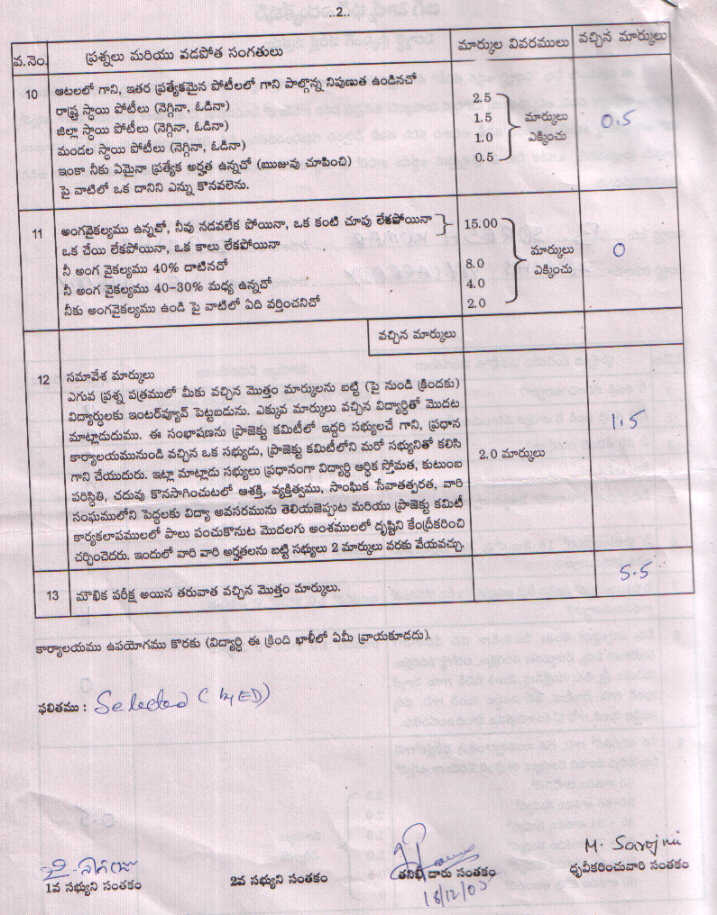 ..2..
వ.నెం. ప్రశ్నలు మరియు వడపోత సంగతులు మార్కుల వివరములు వచ్చిన మార్కులు
10 ఆటలలో గాని, ఇతర ప్రత్యేకమైన పోటీలలో గాని పాల్గొన్న నిపుణత ఉండినచో
రాష్ట్ర స్థాయి పోటీలు (నెగ్గినా, ఓడినా) 2.5
జిల్లా స్థాయి పోటీలు (నెగ్గినా, ఓడినా) 1.5 మార్కులు 0.5
మండల స్థాయి పోటీలు (నెగ్గినా, ఓడినా) 1.0 ఎక్కించు
ఇంకా నీకు ఏమైనా ప్రత్యేక అర్హత ఉన్నచో (ఋజువు చూపించి) 0.5
పై వాటిలో ఒక దానిని ఎన్ను కొనవలెను.
11 అంగవైకల్యము ఉన్నచో, నీవు నడవలేక పోయినా, ఒక కంటి చూపు లేకపోయినా 15.00
ఒక చేయి లేకపోయినా, ఒక కాలు లేకపోయినా మార్కులు 0
నీ అంగ వైకల్యము 40% దాటినచో 8.0 ఎక్కించు
నీ అంగ వైకల్యము 40-30% మధ్య ఉన్నచో 4.0
నీకు అంగవైకల్యము ఉండి పై వాటిలో ఏది వర్తించనిచో 2.0
వచ్చిన మార్కులు
12 సమావేశ మార్కులు
ఎగువ ప్రశ్న పత్రములో మీకు వచ్చిన మొత్తం మార్కులను బట్టి (పై నుండి క్రిందకు)
విద్యార్ధులకు ఇంటర్‌వ్యూవ్ పెట్టబడును. ఎక్కువ మార్కులు వచ్చిన విద్యార్థితో మొదట
మాట్లాడుదుము. ఈ సంభాషణను ప్రాజెక్టు కమిటీలో ఇద్దరి సభ్యులచే గాని, ప్రధాన 1.5
కార్యాలయమునుండి వచ్చిన ఒక సభ్యుడు, ప్రాజెక్టు కమిటీలోని మరో సభ్యునితో కలిసి 2.0 మార్కులు
గాని చేయుదురు. ఇట్లా మాట్లాడు సభ్యులు ప్రధానంగా విద్యార్థి ఆర్ధిక స్తోమత, కుటుంబ
పరిస్థితి, చదువు కొనసాగించుటలో ఆశక్తి, వ్యక్తిత్వము, సాంఘిక సేవాతత్పరత, వారి
సంఘములోని పెద్దలకు విద్యా అవసరమును తెలియజెప్పుట మరియు ప్రాజెక్టు కమిటీ
కార్యకలాపములలో పాలు పంచుకొనుట మొదలగు అంశములలో దృష్టిని కేంద్రీకరించి
చర్చించెదరు. ఇందులో వారి వారి అర్హతలను బట్టి సభ్యులు 2 మార్కులు వరకు వేయవచ్చు.
13 మౌఖిక పరీక్ష అయిన తరువాత వచ్చిన మొత్తం మార్కులు. 5.5
కార్యాలయము ఉపయోగము కొరకు (విద్యార్థి ఈ క్రింది ఖాళీలో ఏమీ వ్రాయకూడదు).
ఫలితము : Selected
M. Sarojini
1వ సభ్యుని సంతకం 2వ సభ్యుని సంతకం తనిఖీ దారు సంతకం ధృవీకరించువారి సంతకం